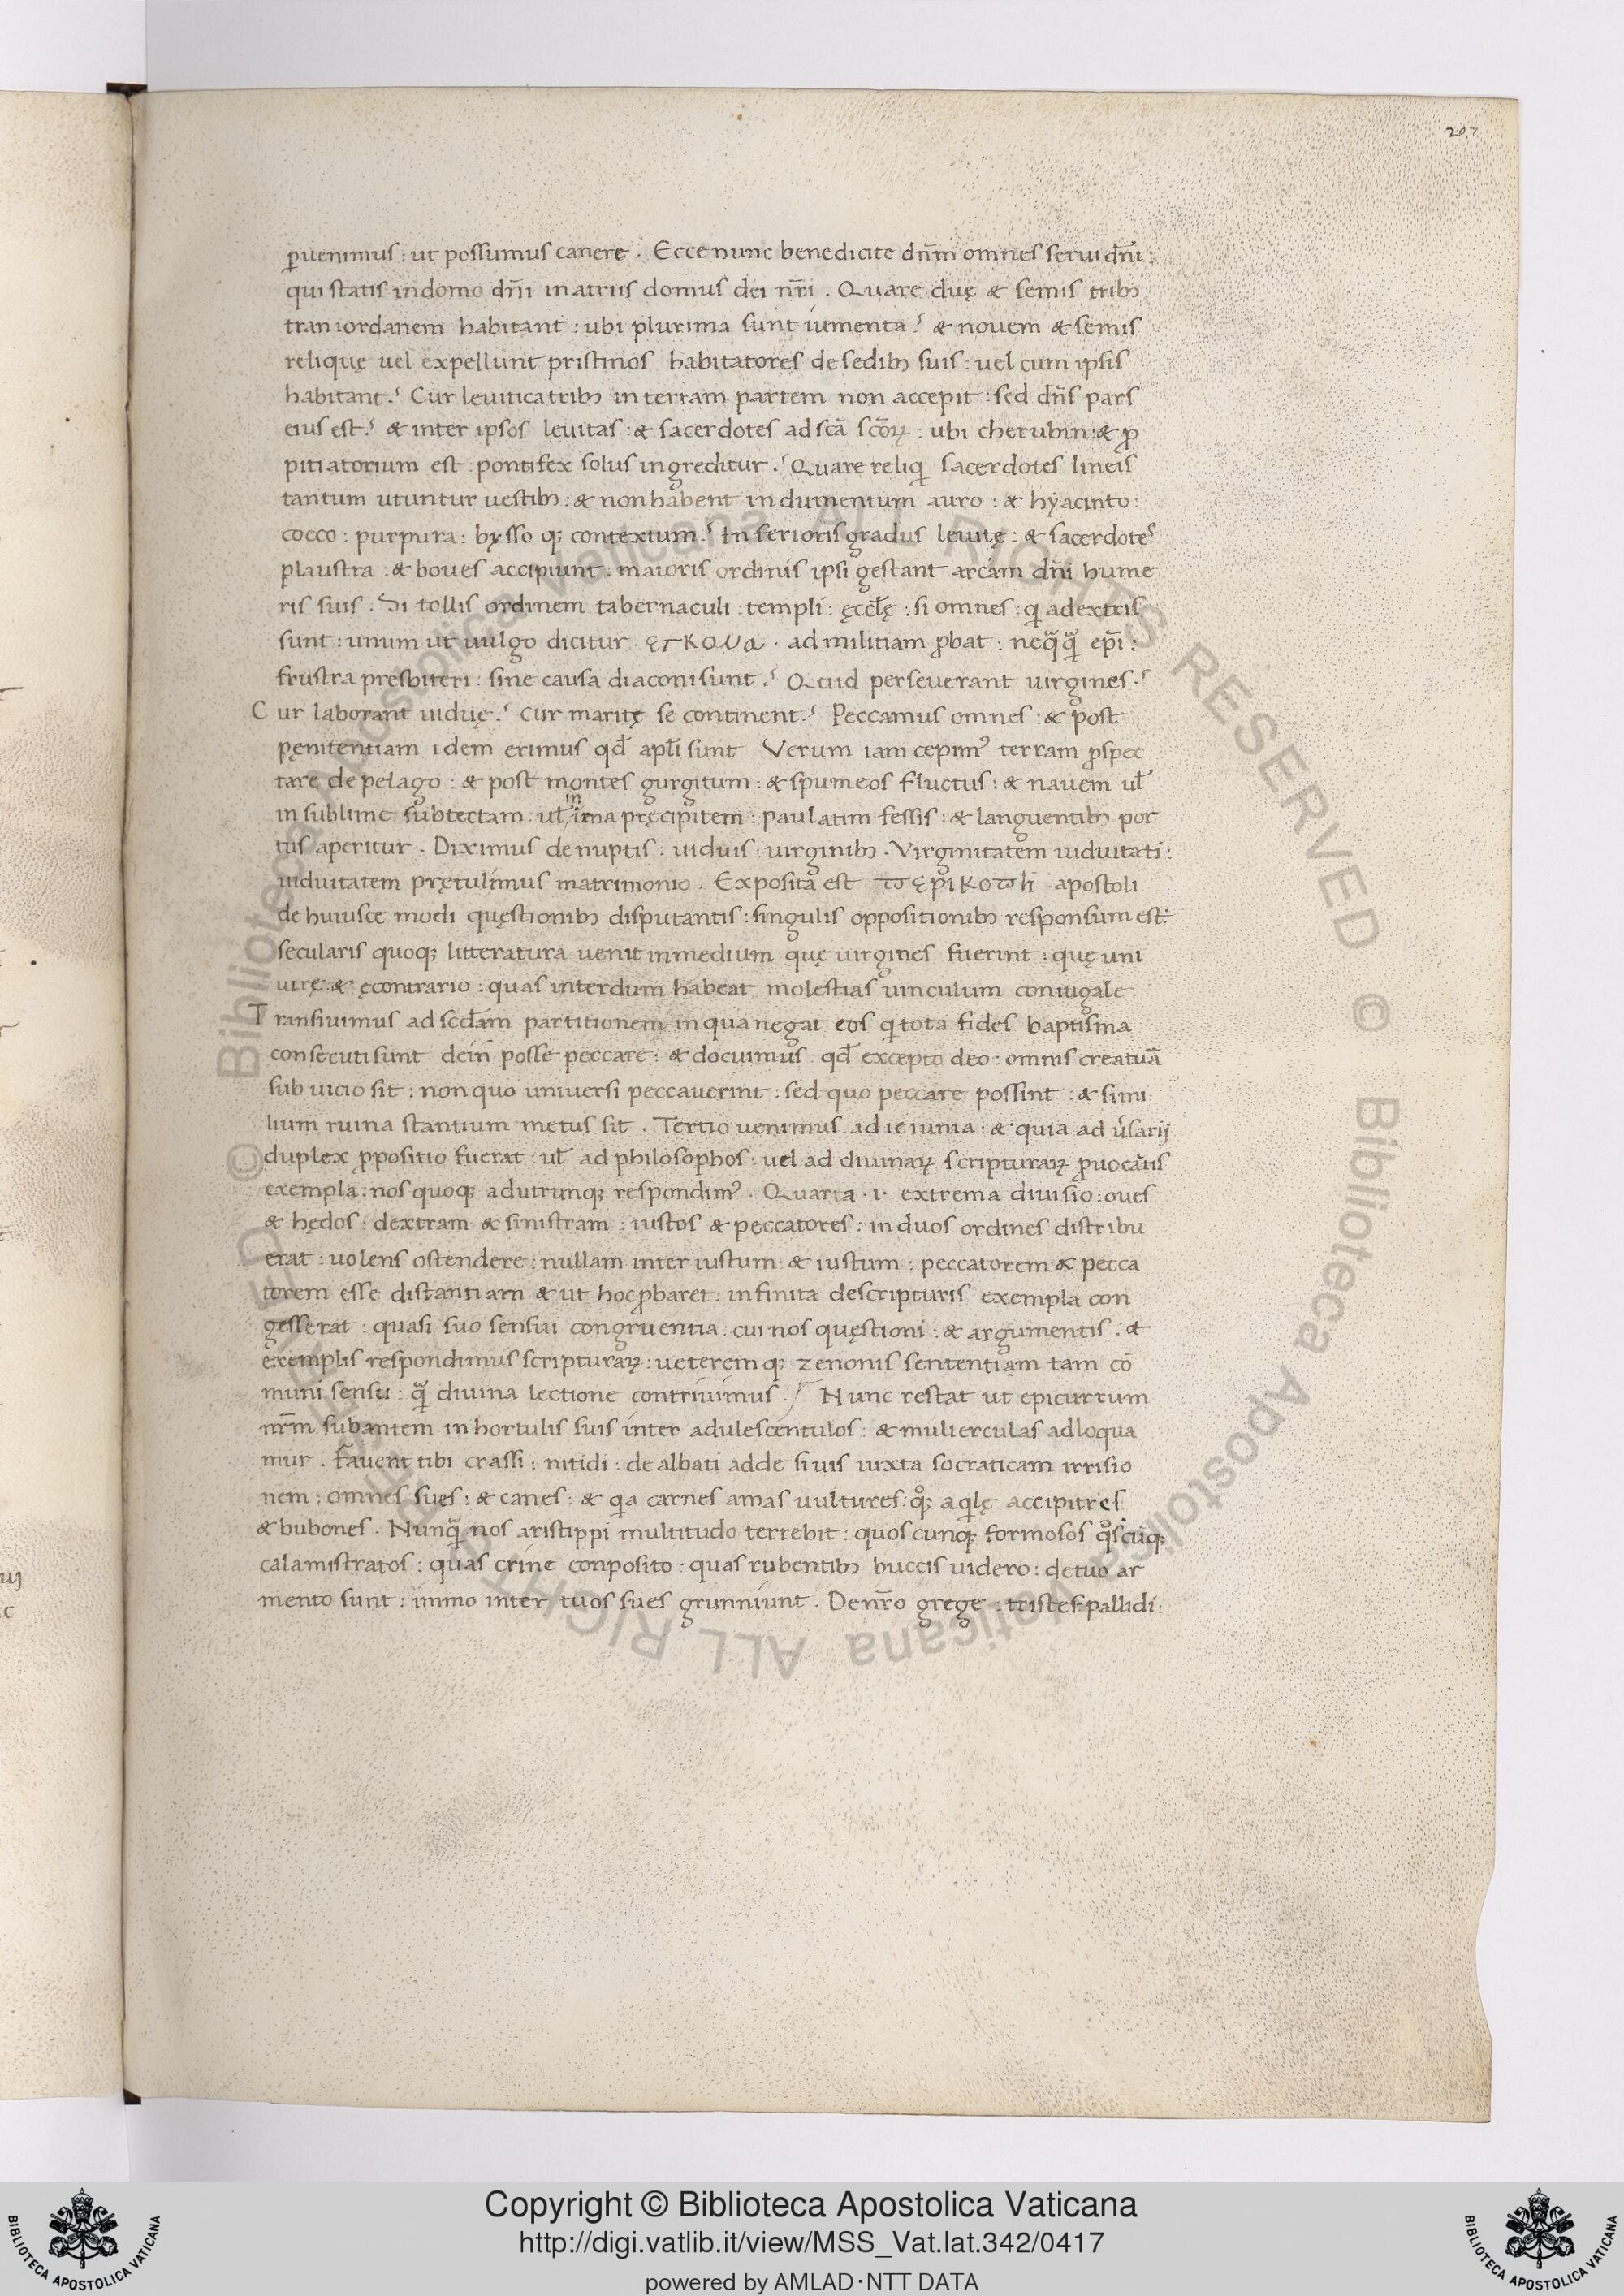 207
ꝑuenimus : ut possumus canere . Ecce nunc benedicite dn̄m omnes serui dn̄i :
qui statis in domo dn̄i in atriis domus dei nr̄i . Quare duę & semis trib;
tran iordanem habitant : ubi plurima sunt iumenta ? & nouem & semis
reliquę uel expellunt pristinos habitatores de sedib; suis : uel cum ipsis
habitant ? Cur leuitica trib; in terram partem non accepit : sed dn̄s pars
eius est ? & inter ipsos leuitas : & sacerdotes ad sc̄a sc̄oꝝ : ubi cherubin : & ꝓ
pitiatorium est : pontifex solus ingreditur ? Quare reliqi sacerdotes lineis
tantum utuntur uestib; : & non habent indumentum auro : & hyacinto :
cocco : purpura : bysso q; contextum ? Inferioris gradus leuitę : & sacerdotes
plaustra . & boues accipiunt . maioris ordinis ipsi gestant arcam dn̄i hume
ris suis . Si tollis ordinem tabernaculi : templi : ęccl̄ę : si omnes : qi a dextris
sunt : unum ut uulgo dicitur . ετκονα . ad militiam ꝓbat : neq̄q̄ ep̄i :
frustra presbiteri : sine causa diaconi sunt ? Quid perseuerant uirgines ?
Cur laborant uiduę ? Cur maritę se continent ? Peccamus omnes : & post
pęnitentiam idem erimus qd̄ apl̄i sunt Verum iam cepimꝰ terram ꝓspec
tare de pelago : & post montes gurgitum : & spumeos fluctus : & nauem ul̄
in sublime subtectam : ul̄ in ima pręcipitem : paulatim fessis : & languentib; por
tus aperitur . Diximus de nuptis . uiduis : uirginib; . Virginitatem uiduitati :
uiduitatem prętulimus matrimonio . Exposita est περικοπh . apostoli
de huiusce modi quęstionib; disputantis : singulis oppositionib; responsum est :
secularis quoq; litteratura uenit in medium quę uirgines fuerint : quę uni
uirę : & ęcontrario : quas interdum habeat molestias uinculum coniugale .
Transiuimus ad scd̄am partitionem in qua negat eos qi tota fides baptisma
consecuti sunt dein̄ posse peccare : & docuimus qd̄ excepto deo : omnis creatuā
sub uicio sit : non quo uniuersi peccauerint : sed quo peccare possint : & simi
lium ruina stantium metus sit . Tertio uenimus ad ieiunia : & quia aduʼsarij
duplex ꝓpositio fuerat : ul̄ ad philosophos : uel ad diuinaꝝ scripturaꝝ ꝓuocātis
exempla : nos quoq; ad utrunq; respondimꝰ . Quarta .i. extrema diuisio : oues
& hędos : dextram & sinistram : iustos & peccatores : in duos ordines distribu
erat : uolens ostendere : nullam inter iustum & iustum : peccatorem & pecca
torem esse distantiam & ut hoc ꝓbaret : infinita de scripturis exempla con
gesserat : quasi suo sensui congruentia : cui nos quęstioni : & argumentis . &
exemplis respondimus scripturaꝝ : ueterem q; zenonis sententiam tam cō
muni sensu : q̄ diuina lectione contriuimus . Nunc restat ut epicurrum
nr̄m subantem in hortulis suis inter adulescentulos : & mulierculas adloqua
mur . Fauent tibi crassi : nitidi : dealbati adde si uis iuxta socraticam irrisio
nem : omnes sues : & canes : & qia carnes amas uultures : qoq; aqilę accipitres
& bubones . Nunq̄ nos aristippi multitudo terrebit : quoscunq; formosos qoscūq;
calamistratos : quas crine conposito : quas rubentib; buccis uidero : de tuo ar
mento sunt : immo inter tuos sues grunniunt . De nr̄o grege : tristes pallidi :
Copyright © Biblioteca Apostolica Vaticana
http://digi.vatlib.it/view/MSS_Vat.lat.342/0417
powered by AMLAD·NTT DATA